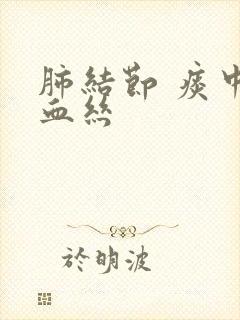 肺結節 痰中
血絲
於明波